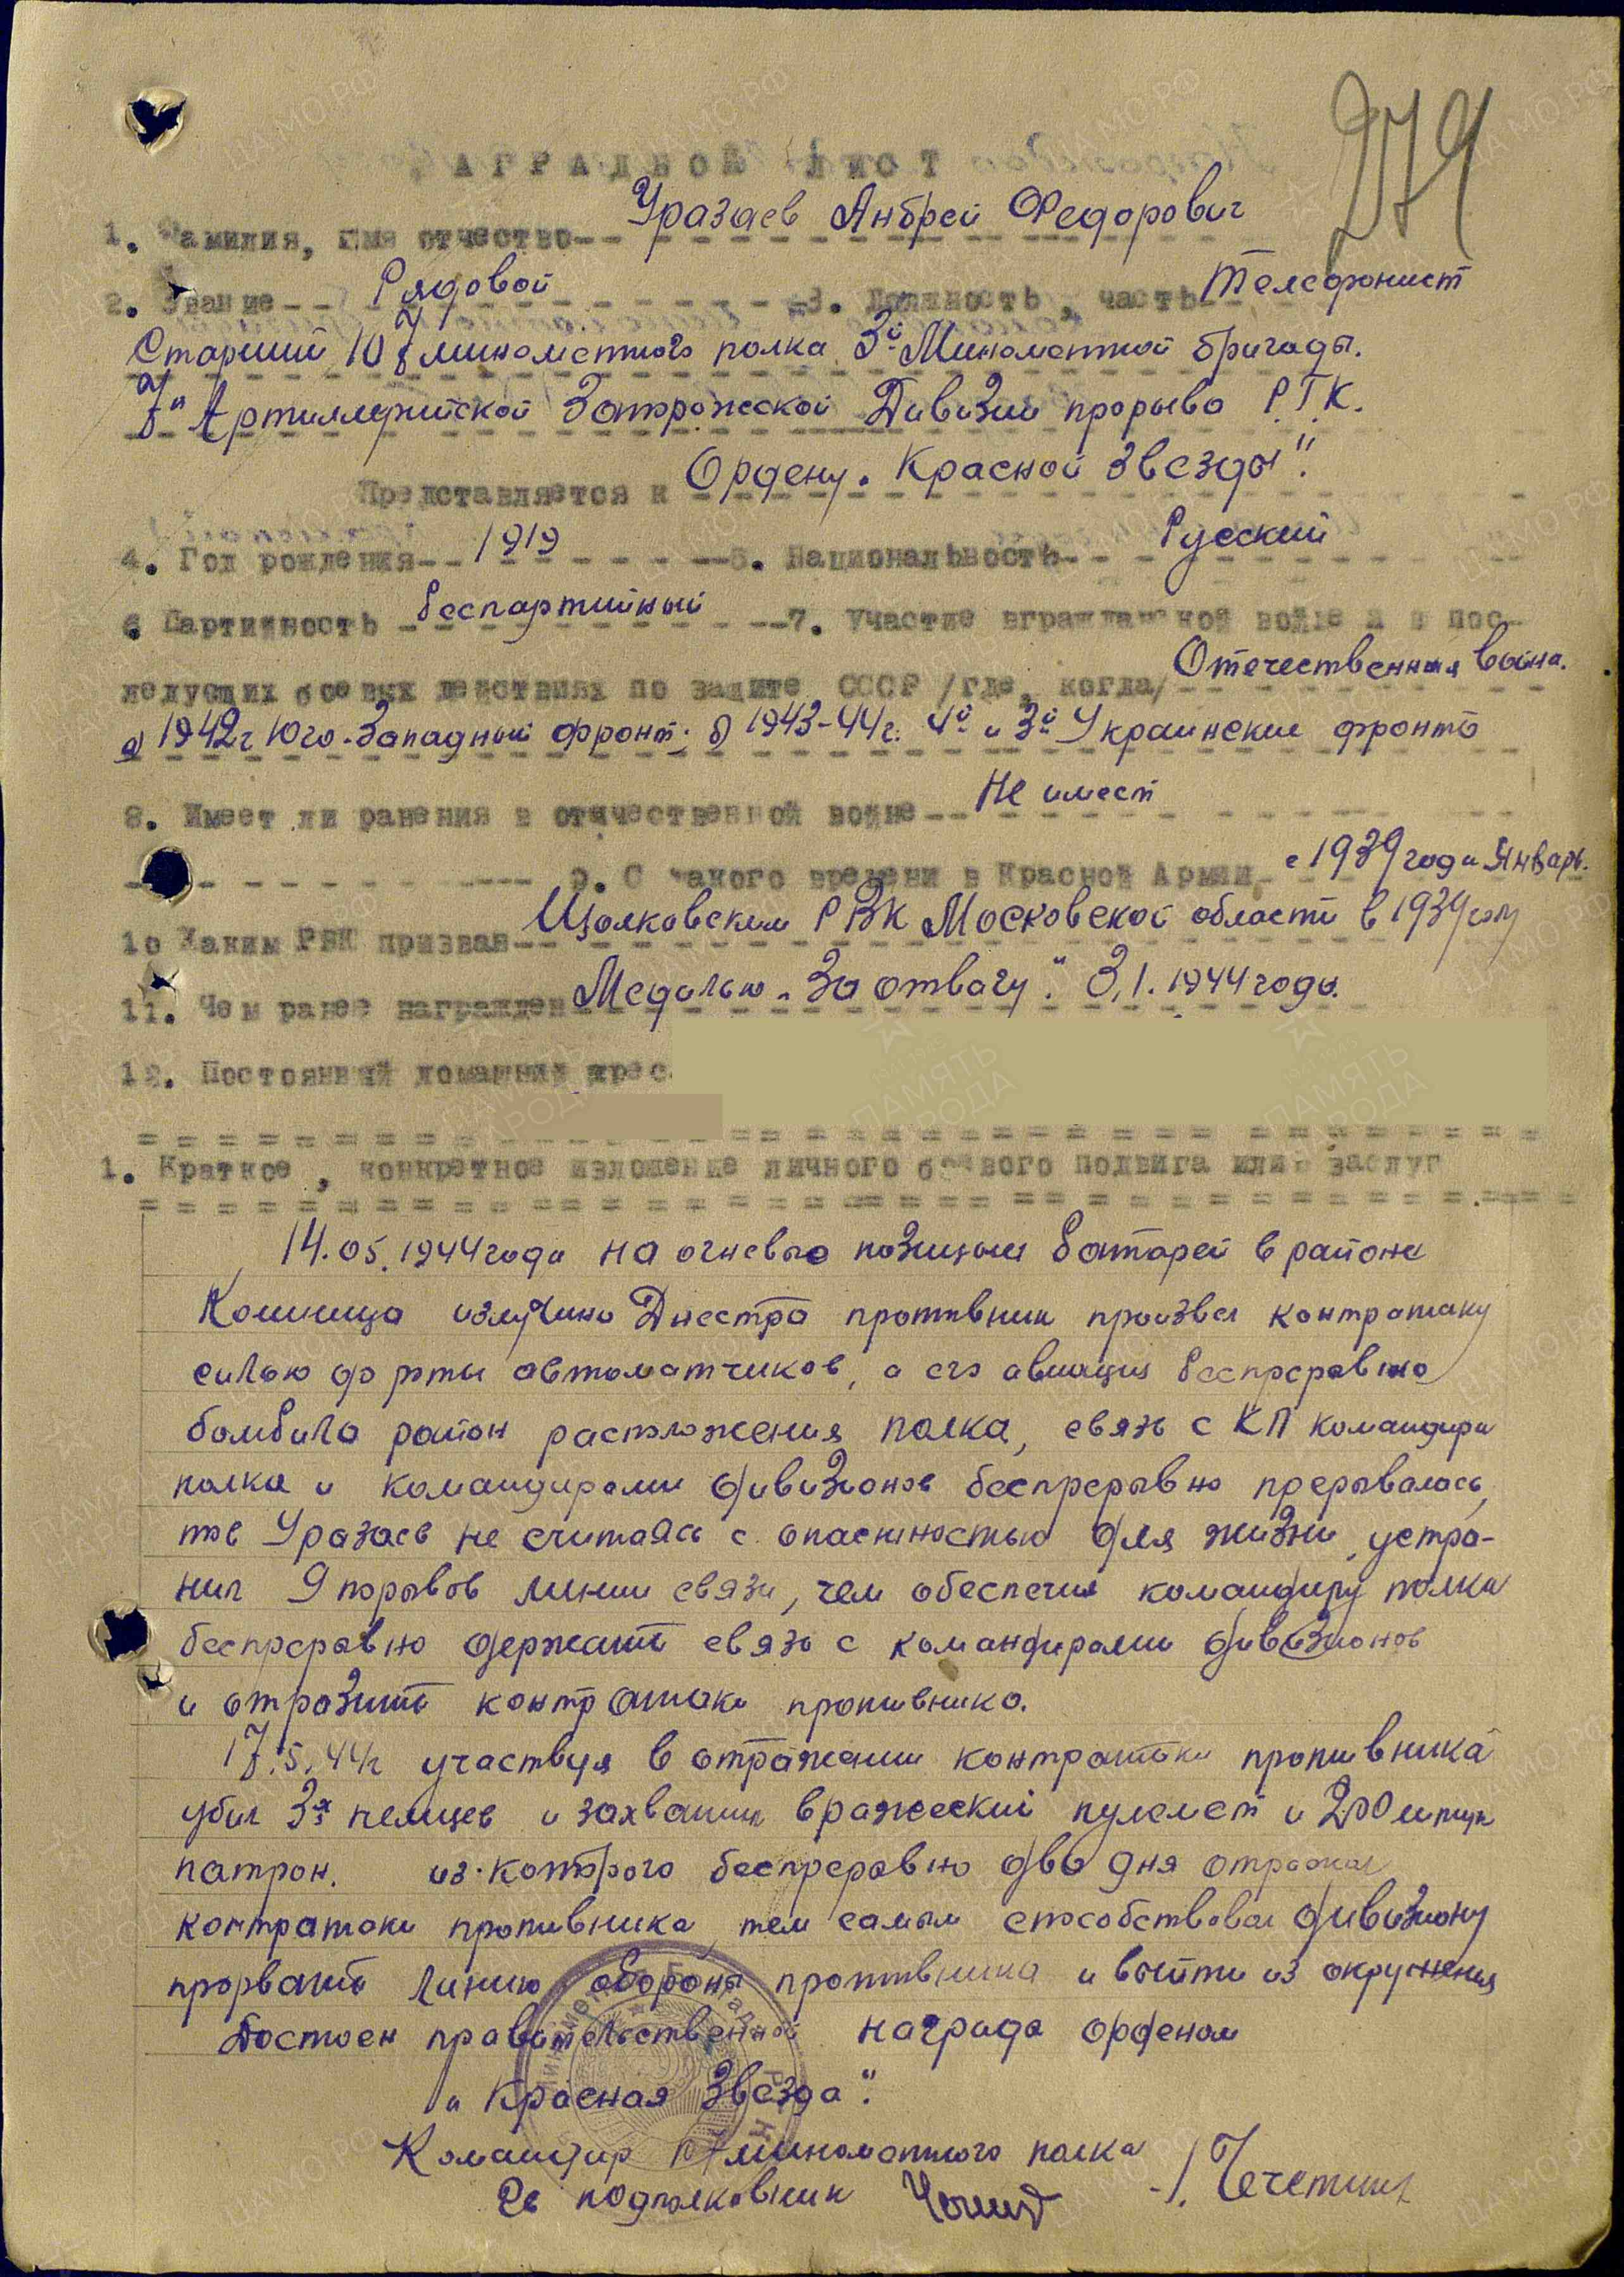 279
НАГРАДНОЙ ЛИСТ
1. Фамилия, имя отчество-- Уразаев Андрей Федорович
2. Звание-- Рядовой 3. Должность, часть-- Телефонист
Старший 107 минометного полка 3й Минометной бригады.
7й Артиллерийской Запорожской Дивизии прорыва Р.Г.К.
Представляется к Ордену "Красной Звезды".
4. Год рождения-- 1919 5. Национальность-- Русский
6 Партийность беспартийный 7. Участие в гражданской войне и в пос-
ледующих боевых действиях по защите СССР /где, когда/ Отечественная война.
а) 1942г Юго-Западный фронт; б) 1943-44г. 4й и 3й Украинские фронты
8. Имеет ли ранения в отечественной войне-- Не имеет
9. С какого времени в Красной Армии с 1939 года Январь.
10 Каким РВК призван-- Щолковским РВК Московской области в 1939 году
11. Чем ранее награжден Медалью "За отвагу". 3.1.1944 года.
12. Постоянный домашний адрес.
1. Краткое, конкретное изложение личного боевого подвига или заслуг
14.05.1944 года на огневые позиции батарей в районе
Кошница излучина Днестра противник произвел контратаку
силою до роты автоматчиков, а его авиация беспрерывно
бомбила район расположения полка, связь с КП командира
полка и командирами дивизионов беспрерывно прерывалась,
тов Уразаев не считаясь с опасностью для жизни, устра-
нил 9 порывов линии связи, чем обеспечил командиру полка
беспрерывно держать связь с командирами дивизионов
и отразить контратаки противника.
17.5.44г участвуя в отражении контратаки противника
убил 3х немцев и захватил вражеский пулемет и 200 штук
патрон. из которого беспрерывно два дня отражал
контратаки противника, тем самым способствовал дивизиону
прорвать линию обороны противника и выйти из окружения
Достоен правительственной награда орденом
"Красная Звезда".
Командир 107 минометного полка
Гв подполковник /Чечеткин